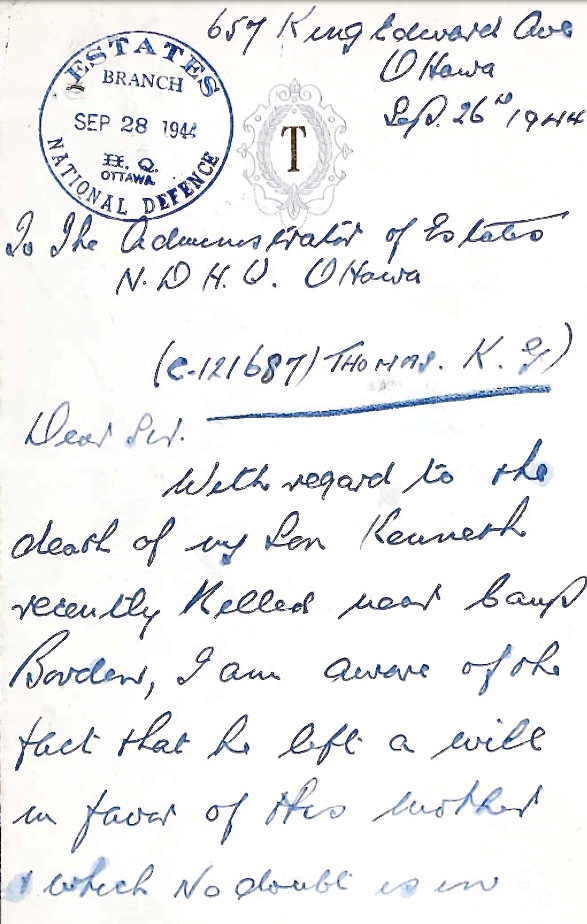 657 King Edward Ave
Ottawa
Sept. 26th 1944
ESTATES
BRANCH
SEP 28 1944
H. Q.
OTTAWA
NATIONAL DEFENCE
T
To The Administrator of Estates
N. D. H. Q. Ottawa
(C-121687) THOMAS. K. G)
Dear Sir.
With regard to the
death of my Son Kenneth
recently Killed near Camp
Borden, I am aware of the
fact that he left a will
in favor of His mother
which No doubt is in